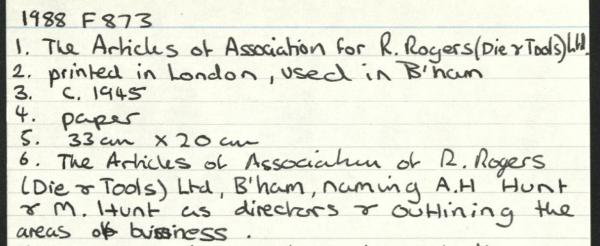 1988 F873
1. The Articles of Association for R. Rogers (Die & Tools) Ltd.
2. printed in London, used in B'ham
3. C. 1945
4. paper
5. 33cm x 20cm
6. The Articles of Association of R. Rogers
(Die & Tools) Ltd, B'ham, naming A.H Hunt
& M. Hunt as directors & outlining the
areas of business.